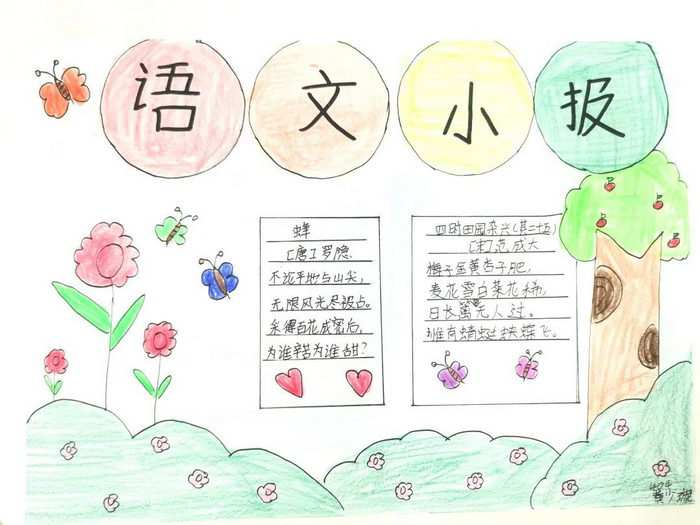 语文小报
蜂
[唐]罗隐
不论平地与山尖，
无限风光尽被占。
采得百花成蜜后，
为谁辛苦为谁甜？
四时田园杂兴(其二十五)
[宋]范成大
梅子金黄杏子肥，
麦花雪白菜花稀，
日长篱无人过。
惟有蜻蜓蛱蝶飞。